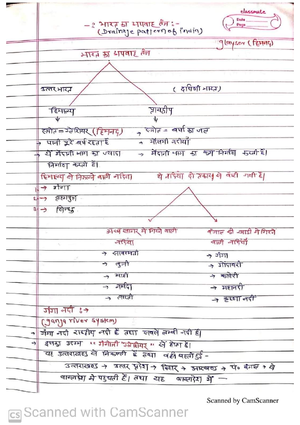 -: भारत का अपवाह तंत्र :-
(Drainage pattern of India)
classmate
Date
Page
glacier (हिमनद)
भारत का अपवाह तंत्र
उत्तर भारत
(दक्षिणी भारत)
हिमालय
प्रायद्वीप
स्रोत = ग्लेशियर (हिमनद)
स्रोत = वर्षा का जल
पानी पूरे वर्ष रहता है
मौसमी नदियाँ
ये मैदानी भाग का ज्यादा निर्माण करती है।
मैदानी भाग का कम निर्माण करती है।
हिमालय से निकलने वाली नदियाँ
ये नदियाँ दो प्रकार से बंटी गयी है।
1) → गंगा
2) → ब्रह्मपुत्र
3) → सिन्धु
अरब सागर में गिरने वाली नदियाँ
बंगाल की खाड़ी में गिरने वाली नदियाँ
→ साबरमती
→ लूनी
→ माही
→ नर्मदा
→ ताप्ती
→ गंगा
→ गोदावरी
→ कावेरी
→ महानदी
→ कृष्णा नदी
गंगा नदी :→
(ganga river system)
→ गंगा नदी राष्ट्रीय नदी है तथा सबसे लम्बी नदी है।
→ इसका उद्गम "गंगोत्री ग्लेशियर" से होता है।
→ यह उत्तराखण्ड से निकलती है तथा वहाँ बहती हुई -
उत्तराखण्ड → उत्तर प्रदेश → बिहार → झारखण्ड → प० बंगाल → से
बांग्लादेश में पहुंचती है। तथा यह
Scanned by CamScanner
CS Scanned with CamScanner